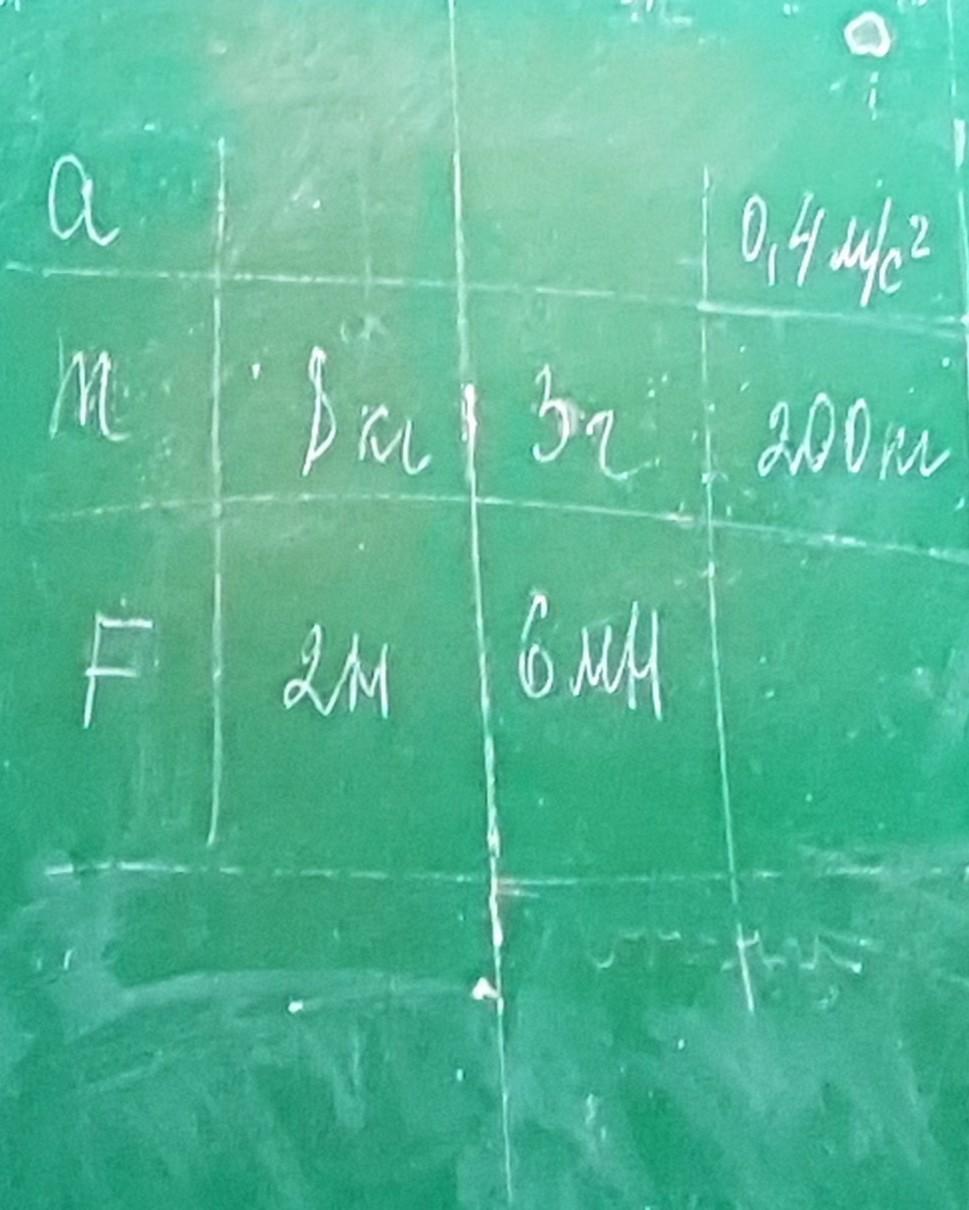 a 0,4 м/с²
m 8 кг 3 г 200 кг
F 2 Н 6 мН